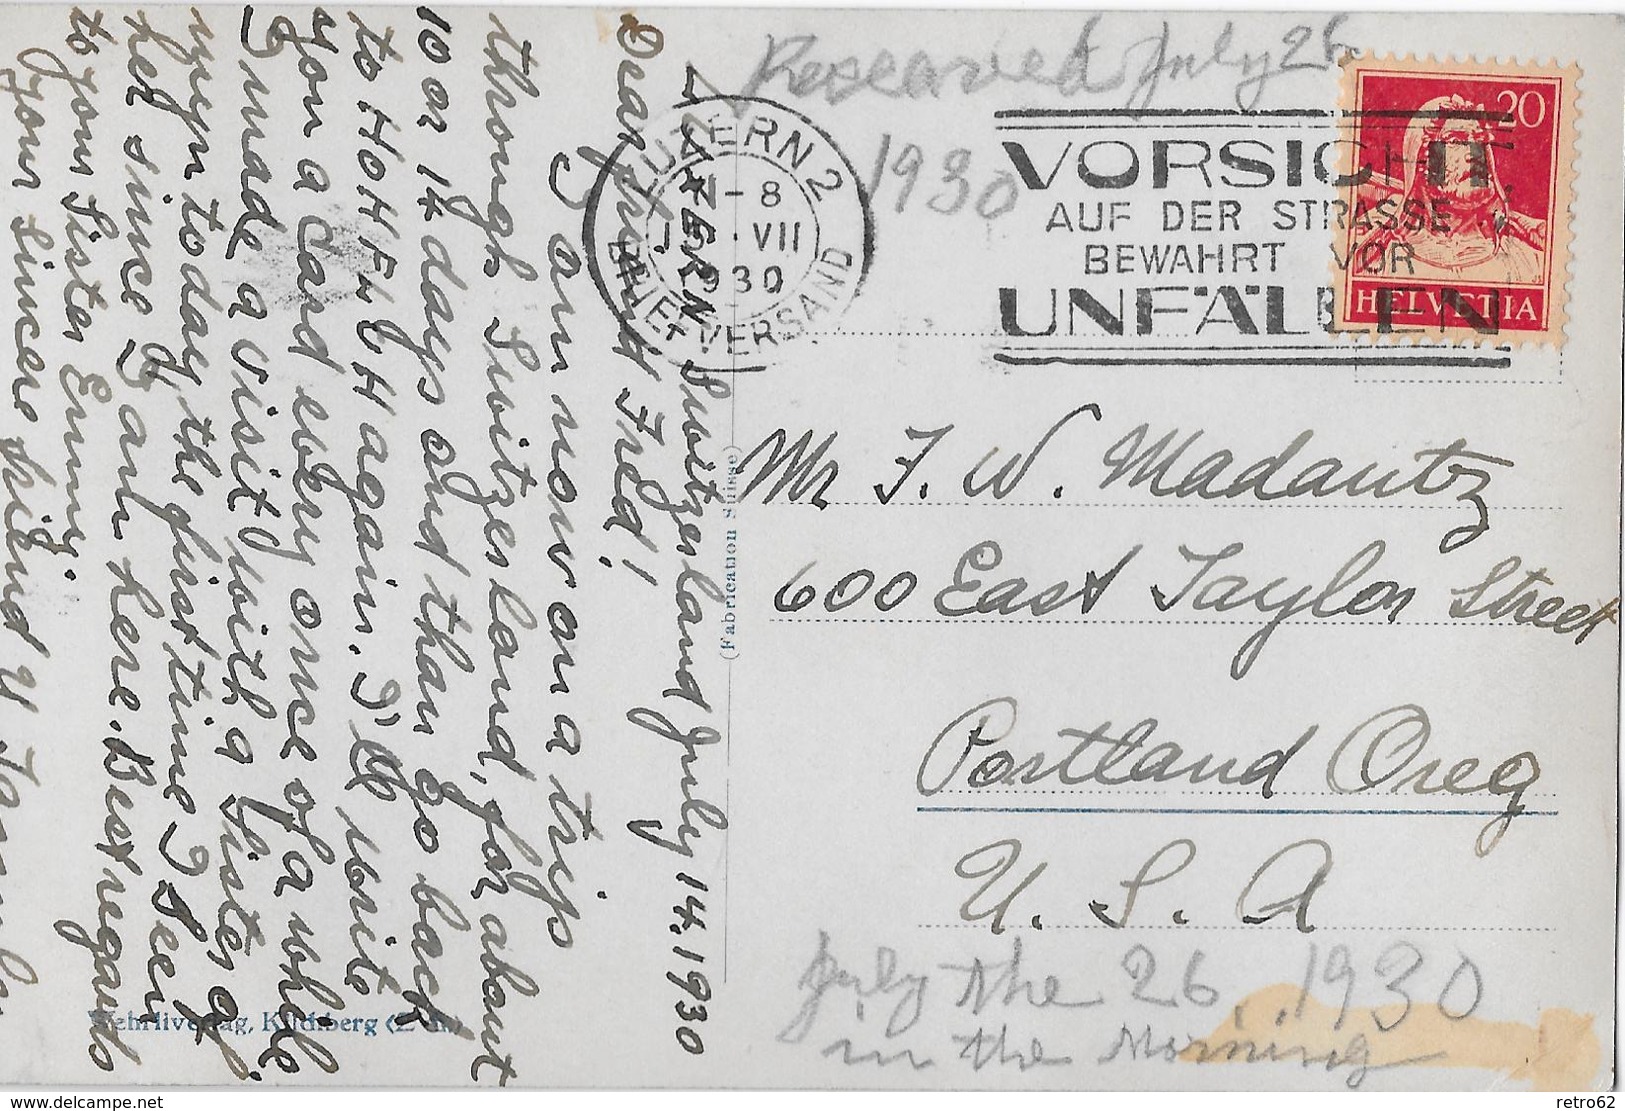 LUZERN, Switzerland July 14. 1930
Dear friend Fred!
I am now on a trip
through Switzerland, for about
10 or 14 days and than go back
to HOHENECH again. I'll write
you a card ebery once of a while
I made a visit with a Sister of
myn today, the first time I seen
her since I am here. Best regards
to your Sister Emmy.
your sincere friend
Reseaved July 26
1930
LUZERN 2
-8
VII
1930
BRIEFVERSAND
VORSICHT
AUF DER STRASSE
BEWAHRT VOR
UNFÄLLEN
20
HELVETIA
Mr F. W. Madautz
600 East Taylor Street
Portland Oreg
U. S. A
July the 26, 1930
in the Morning
(Fabrication Suisse)
Wehrliverlag, Kilchberg (Zch.)
delcampe.net
retro62